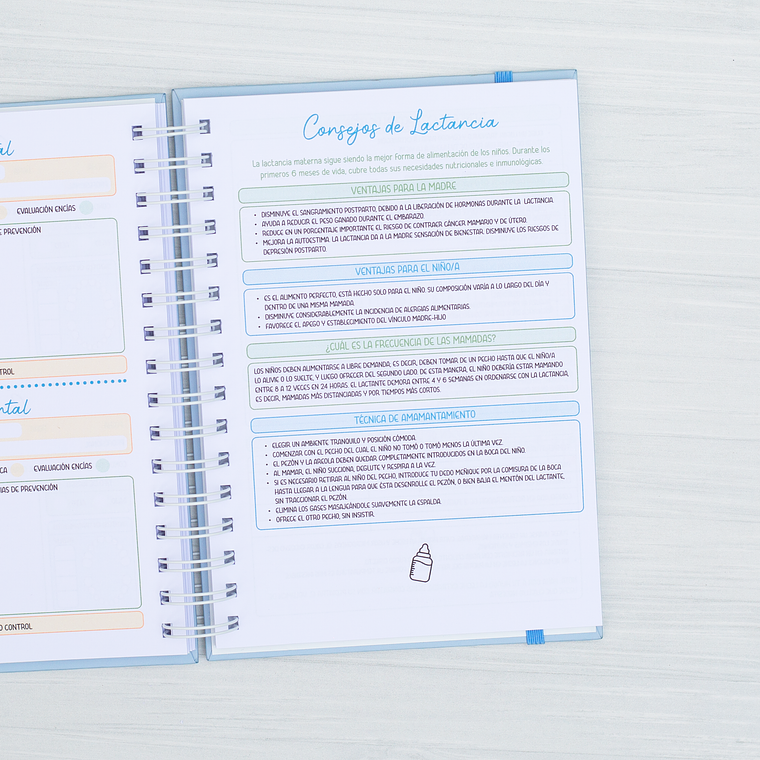 al
EVALUACIÓN ENCÍAS
E PREVENCIÓN
TROL
ntal
CA
EVALUACIÓN ENCÍAS
AS DE PREVENCIÓN
O CONTROL
Consejos de Lactancia
La lactancia materna sigue siendo la mejor forma de alimentación de los niños. Durante los
primeros 6 meses de vida, cubre todas sus necesidades nutricionales e inmunológicas.
VENTAJAS PARA LA MADRE
• DISMINUYE EL SANGRAMIENTO POSTPARTO, DEBIDO A LA LIBERACIÓN DE HORMONAS DURANTE LA LACTANCIA
• AYUDA A REDUCIR EL PESO GANADO DURANTE EL EMBARAZO.
• REDUCE EN UN PORCENTAJE IMPORTANTE EL RIESGO DE CONTRAER CÁNCER MAMARIO Y DE ÚTERO.
• MEJORA LA AUTOESTIMA. LA LACTANCIA DA A LA MADRE SENSACIÓN DE BIENESTAR, DISMINUYE LOS RIESGOS DE
DEPRESIÓN POSTPARTO.
VENTAJAS PARA EL NIÑO/A
• ES EL ALIMENTO PERFECTO, ESTÁ HECHO SOLO PARA EL NIÑO. SU COMPOSICIÓN VARÍA A LO LARGO DEL DÍA Y
DENTRO DE UNA MISMA MAMADA.
• DISMINUYE CONSIDERABLEMENTE LA INCIDENCIA DE ALERGIAS ALIMENTARIAS.
• FAVORECE EL APEGO Y ESTABLECIMIENTO DEL VÍNCULO MADRE-HIJO
¿CUÁL ES LA FRECUENCIA DE LAS MAMADAS?
LOS NIÑOS DEBEN ALIMENTARSE A LIBRE DEMANDA, ES DECIR, DEBEN TOMAR DE UN PECHO HASTA QUE EL NIÑO/A
LO ALIVIE O LO SUELTE, Y LUEGO OFRECER DEL SEGUNDO LADO. DE ESTA MANERA, EL NIÑO DEBERÍA ESTAR MAMANDO
ENTRE 8 A 12 VECES EN 24 HORAS. EL LACTANTE DEMORA ENTRE 4 Y 6 SEMANAS EN ORDENARSE CON LA LACTANCIA,
ES DECIR, MAMADAS MÁS DISTANCIADAS Y POR TIEMPOS MÁS CORTOS.
TÉCNICA DE AMAMANTAMIENTO
• ELEGIR UN AMBIENTE TRANQUILO Y POSICIÓN CÓMODA.
• COMENZAR CON EL PECHO DEL CUAL EL NIÑO NO TOMÓ O TOMÓ MENOS LA ÚLTIMA VEZ.
• EL PEZÓN Y LA AREOLA DEBEN QUEDAR COMPLETAMENTE INTRODUCIDOS EN LA BOCA DEL NIÑO.
• AL MAMAR, EL NIÑO SUCCIONA, DEGLUTE Y RESPIRA A LA VEZ.
• SI ES NECESARIO RETIRAR AL NIÑO DEL PECHO, INTRODUCE TU DEDO MEÑIQUE POR LA COMISURA DE LA BOCA
HASTA LLEGAR A LA LENGUA PARA QUE ÉSTA DESENROLLE EL PEZÓN, O BIEN BAJA EL MENTÓN DEL LACTANTE,
SIN TRACCIONAR EL PEZÓN.
• ELIMINA LOS GASES MASAJEÁNDOLE SUAVEMENTE LA ESPALDA.
• OFRECE EL OTRO PECHO, SIN INSISTIR.